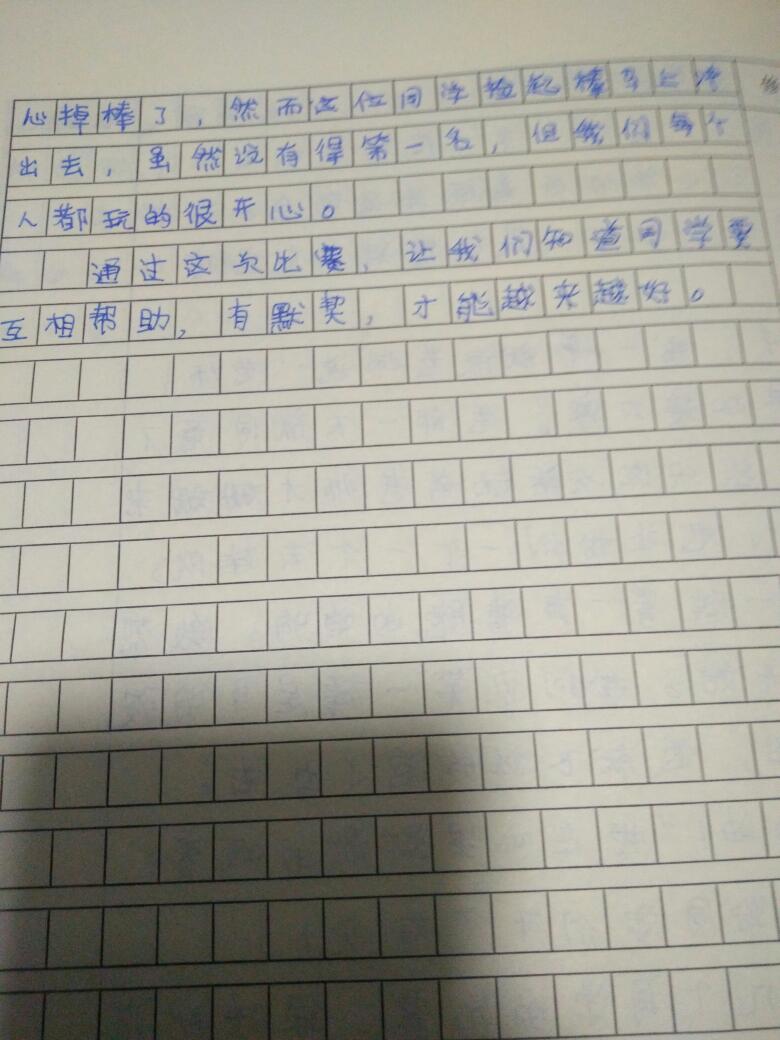 心掉棒了，然而这位同学捡起棒马上冲
出去，虽然没有得第一名，但我们每个
人都玩的很开心。
通过这次比赛，让我们知道同学要
互相帮助，有默契，才能越来越好。